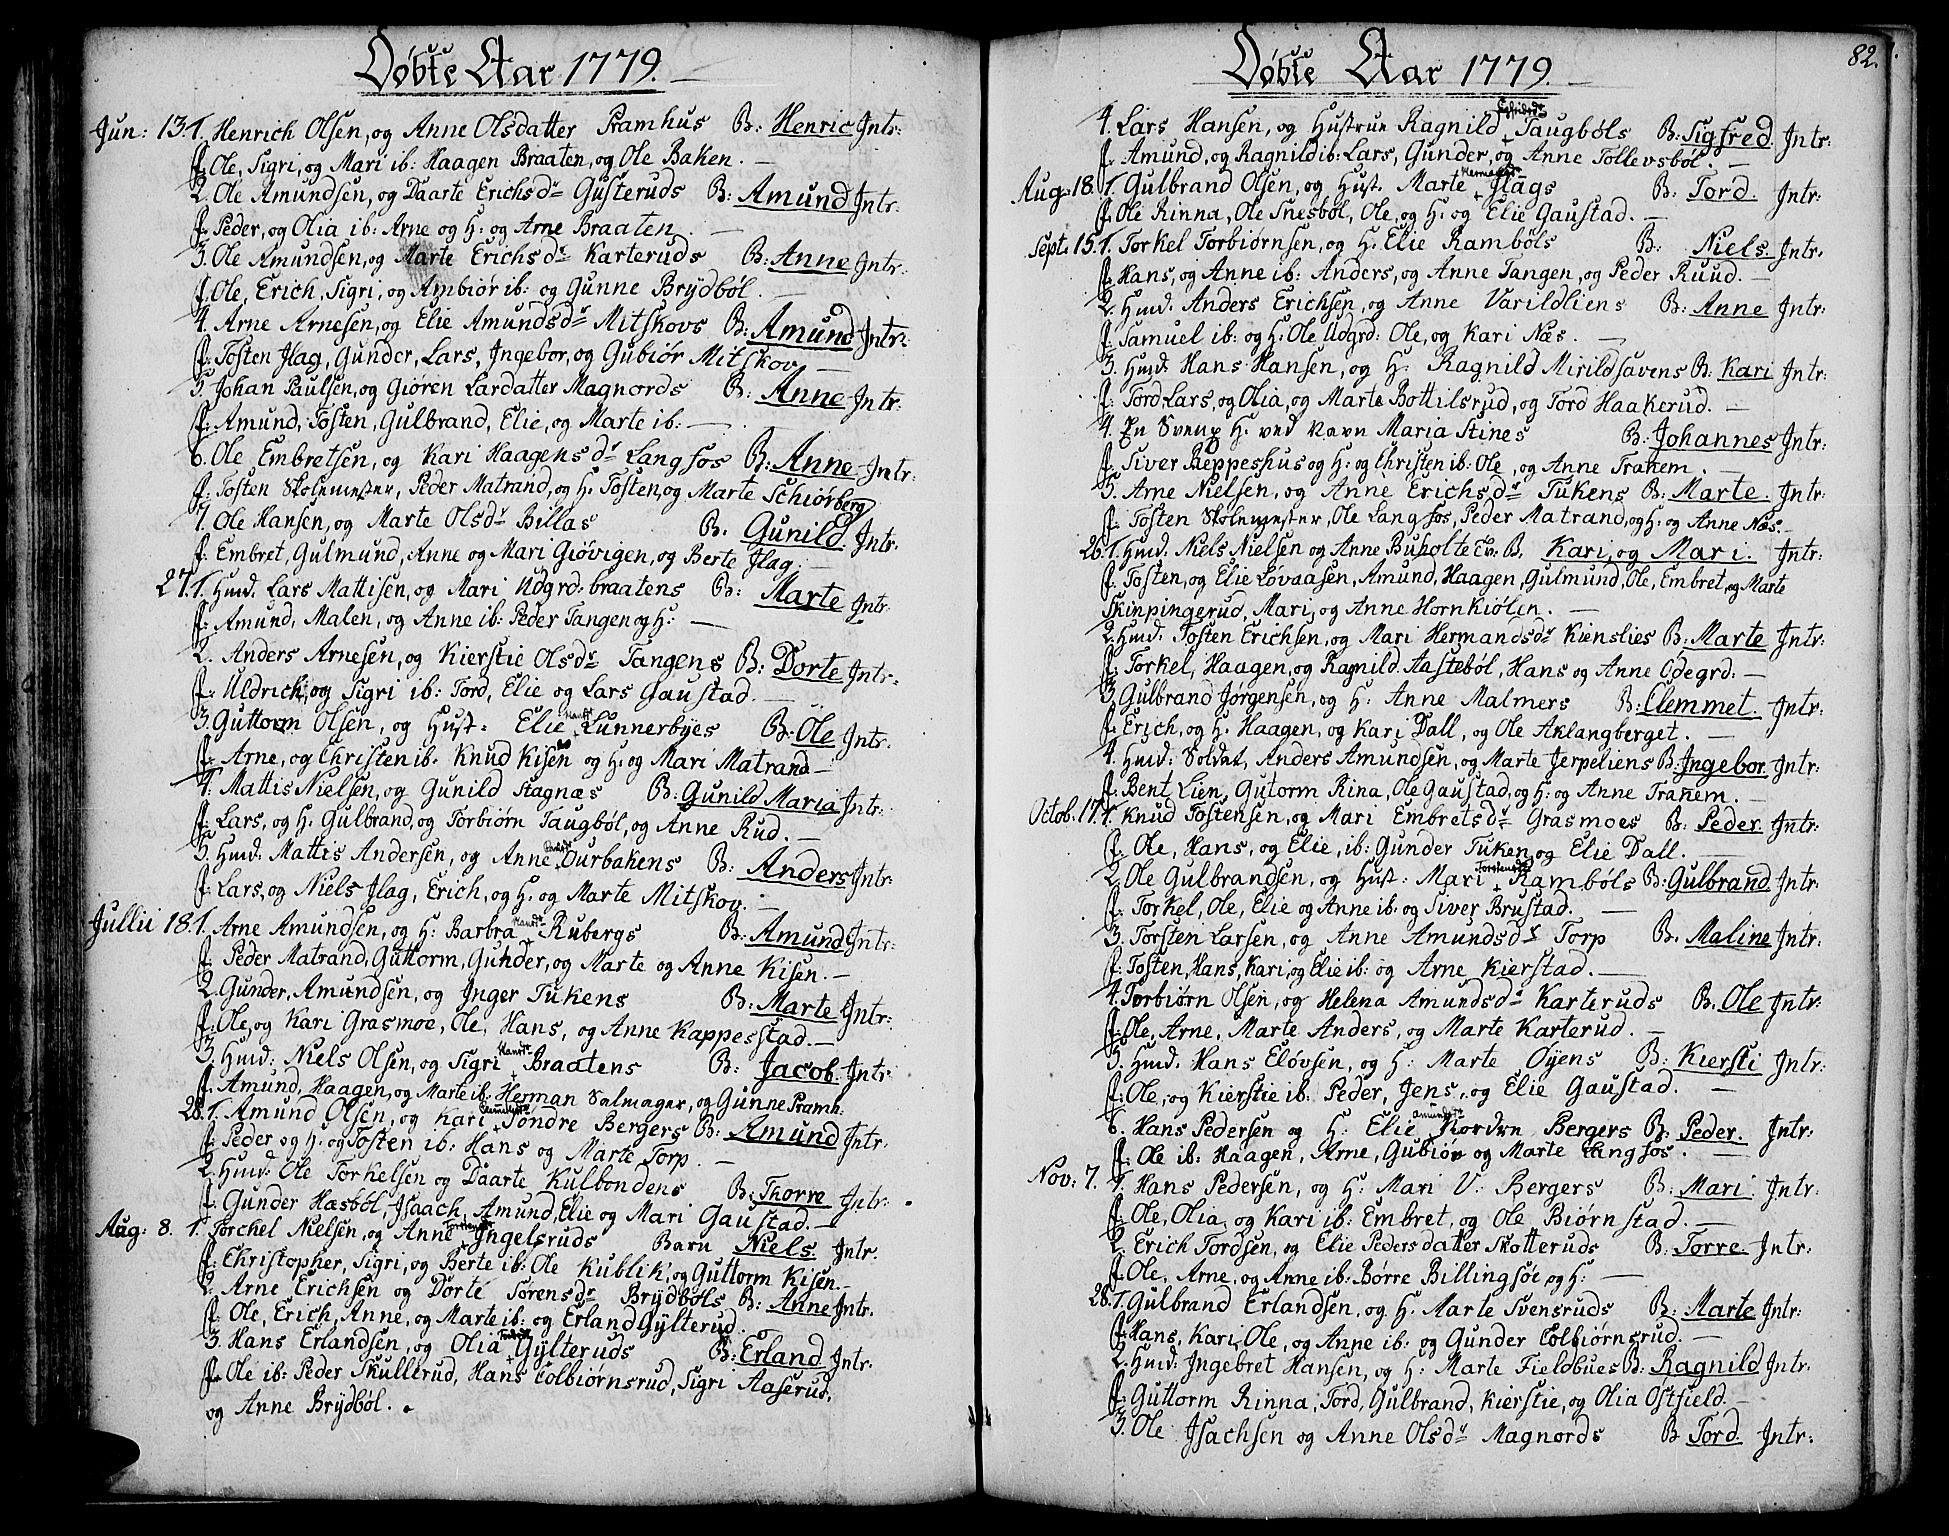 Døbte Aar 1779.
Jun: 13. 1. Henrich Olsen, og Anne Olsdatter Pramhus B: Henric Intr:
f: Ole, Sigri, og Mari ib: Haagen Braaten, og Ole Baken.
2. Ole Amundsen, og Daarte Erichsdr Gusteruds B: Amund Intr:
f: Peder, og Olia ib: Arne og H: og Arne Braaten.
3. Ole Amundsen, og Marte Erichsdr Karteruds B: Anne Intr:
f: Ole, Erich, Sigri, og Ambiør ib: og Gunne Brydbøl.
4. Arne Arnesen, og Elie Amundsdr Mitskovs B: Amund Intr:
f: Tosten Flag, Gunder, Lars, Ingebor, og Gubiør Mitskov
5. Johan Paulsen, og Giøren Larsdatter Magnords B: Anne Intr:
f: Amund, Tosten, Gulbrand, Elie, og Marte ib:
6. Ole Embretsen, og Kari Haagensdr Langsos B: Anne Intr:
f: Tosten Skolemester, Peder Matrand, og H. Tosten, og Marte Schiørberg
7. Ole Hansen, og Marte Olsdr Billas B. Gunild Intr:
f: Embret, Gulmund, Anne og Mari Giøvigen, og Berte Flag:
27. 1. Hmd. Lars Mattisen, og Mari Udgrd:braatens B: Marte Intr:
f: Amund, Malen, og Anne ib: Peder Tangen og H:
2. Anders Arnesen, og Kierstie Olsdr Tangens B: Dorte Intr:
f: Uldrich, og Sigri ib: Tord, Elie og Lars Gaustad.
3. Guttorm Olsen, og Hust: Elie Hansdr Lunnerbyes B: Ole Intr:
f: Arne, og Christen ib. Knud Kisen og H: og Mari Matrand
4. Mattis Nielsen, og Gunild Hagnæs B: Gunild Maria Intr:
f: Lars, og H. Gulbrand, og Torbiørn Taugbøl, og Anne Rud.
5. Hmd. Mattis Andersen, og Anne Ourbakens B: Anders Intr:
f: Lars, og Niels Flag, Erich, og H. og Marte Mitskov.
Jullii 18. 1. Arne Amundsen, og H: Barbra Hansdr Rubergs B: Amund Intr:
f: Peder Matrand, Guttorm, Gunder, og Marte og Anne Kisen.
2. Gunder, Amundsen, og Inger Tukens B: Marte Intr:
f: Ole, og Kari Grasmoe, Ole, Hans, og Anne Kappesstad.
3. Hmd: Niels Olsen, og Sigri Hansdr Braatens B: Jacob Intr:
f. Amund, Haagen, og Marte ib: Herman Salmager, og Gunne Pramh:
28. 1. Amund Olsen, og Kari Søndre Bergers B: Amund Intr:
f: Peder og H: og Tosten ib: Hans og Marte Torp.
2. Hmd: Ole Torkelsen og Daarte Kulbondens B: Thorre Intr:
f: Gunder Hæsbøl, Isaach, Amund, Elie og Mari Gaustad.
Aug: 8. 1. Torchel Nielsen, og Anne Ingelsruds Barn Niels. Intr.
f: Christopher, Sigri, og Berte ib: Ole Kublik, og Guttorm Kisen.
2. Arne Erichsen og Dorte Sørensdr Brydbøls B: Anne Intr.
f: Ole, Erich, Anne, og Marte ib: og Erland Gylterud.
3. Hans Erlandsen, og Olia Gylteruds B: Erland Intr:
f: Ole ib: Peder Skullerud, Hans Colbiørnsrud, Sigri Aaserud,
og Anne Brydbøl.
Døbte Aar 1779. 82.
4. Lars Hansen, og Hustrue Ragnild Taugbøls B: Sigfred Intr:
f: Amund, og Ragnild ib: Lars, Gunder, og Anne Tollevsbøl.
Aug: 18. 1. Gulbrand Olsen, og Hust. Marte Flags B: Tord. Intr:
f: Ole Rinna, Ole Snesbøl, Ole, og H: og Elie Gaustad.
Sept: 15. 1. Torkel Torbiørnsen, og H. Elie Rambøls B: Niels. Intr:
f: Hans, og Anne ib: Anders, og Anne Tangen, og Peder Ruud.
2. Hmd. Anders Erichsen, og Anne Varildliens B: Anne Intr:
f: Samuel ib: og H: Ole Udgrd: Ole, og Kari Næs.
3. Hmd. Hans Hansen, og H: Ragnild Mirildsavens B: Kari Intr:
f: Tord, Lars, og Olia, og Marte Bottilsrud, og Tord Haakerud.
4. En Svensk H: ved Navn Maria Stines B: Johannes Intr:
f: Siver Reppeshus og H: og Christen ib: Ole, og Anne Tranem.
5. Arne Nielsen, og Anne Erichsdr Tukens B: Marte. Intr:
f: Tosten Skolemester, Ole Langsos, Peder Matrand, og H: og Anne Næs.
26. 1. Hmd. Niels Nielsen og Anne Buholte Tv: B. Kari, og Mari. Intr:
f: Tosten, og Elie Løvaasen, Amund, Haagen, Gulmund, Ole, Embret, og Marte
Skinpingerud, Mari, og Anne Hornkiølen.
2. Hmd. Tosten Erichsen, og Mari Hermandsdr Kienslies B: Marte Intr:
f: Torkel, Haagen, og Ragnild Aastebøl, Hans og Anne Odegrd:
3. Gulbrand Jørgensen, og H: Anne Malmers B: Clemmet. Intr:
f: Erich, og H: Haagen, og Kari Dall, og Ole Aklangberget.
4. Hmd: Soldat, Anders Amundsen, og Marte Jerpeliens B: Ingebor Intr:
f: Bent Lien, Gutorm Rina, Ole Gaustad, og H: og Anne Tranem.
Octob. 17. 1. Knud Tostensen, og Mari Embretsdr Grasmoes B: Peder. Intr:
f: Ole, Hans, og Elie, ib: Gunder Tuken, og Elie Dall.
2. Ole Gulbrandsen, og Hust: Mari Rambøls B: Gulbrand Intr:
f: Torkel, Ole, Elie og Anne ib: og Siver Brustad.
3. Torsten Larsen, og Anne Amundsdr Torp B. Maline Intr:
f: Tosten, Hans, Kari, og Elie ib: og Arne Kierstad.
4. Torbiørn Olsen, og Helena Amundsdr Karteruds B. Ole Intr:
f: Ole, Arne, Marte Anders, og Marte Karterud.
5. Hmd. Hans Elovsen, og H: Marte Oyens B: Kiersti Intr:
f: Ole, og Kierstie ib: Peder, Jens, og Elie Gaustad.
6. Hans Pedersen og H: Elie Amundsdr Norden Bergers B: Peder. Intr:
f: Ole ib: Haagen, Arne, Gubiør og Marte Langsos.
Nov: 7. 1. Hans Pedersen, og H: Mari V. Bergers B: Mari Intr:
f: Ole, Olia, og Kari ib: Embret, og Ole Biørnstad.
2. Erich Tordsen, og Elie Pedersdatter Skotteruds B: Torre. Intr:
f: Ole, Arne, og Anne ib: Børre Billingsøe og H:
28. 1. Gulbrand Erlandsen, og H: Marte Svensruds B: Marte Intr:
f: Hans, Kari, Ole, og Anne ib: og Gunder Colbiørnsrud.
2. Hmd: Ingebret Hansen, og H: Marte Fieldbues B: Ragnild Intr:
f: Guttorm Rinna, Tord, Gulbrand, Kierstie, og Olia Ostfield.
3. Ole Isachsen og Anne Olsdr Magnords B Tord. Intr: